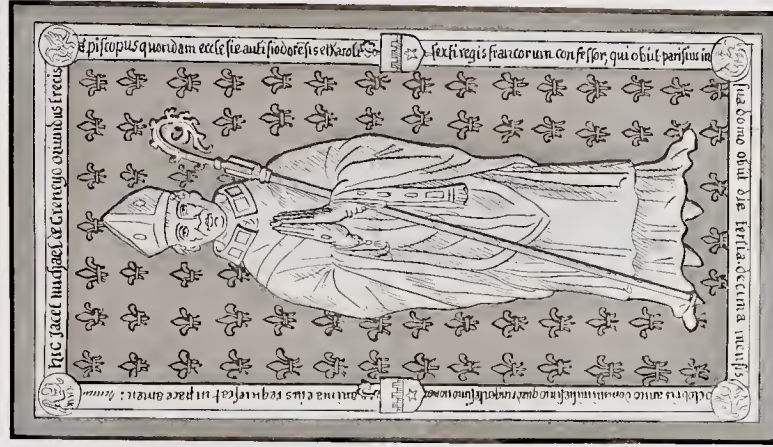 hic Jacet michael de Creneyo oriundus trecis
Episcopus quondam ecclesie autisiodoresis et Karoli
sexti regis francorum confessor, qui obiit parisius in
sua domo obiit die tertia decima mensis
octobris anno domini millesimo quadringentesimo nono
anima eius requiescat in pace amen: